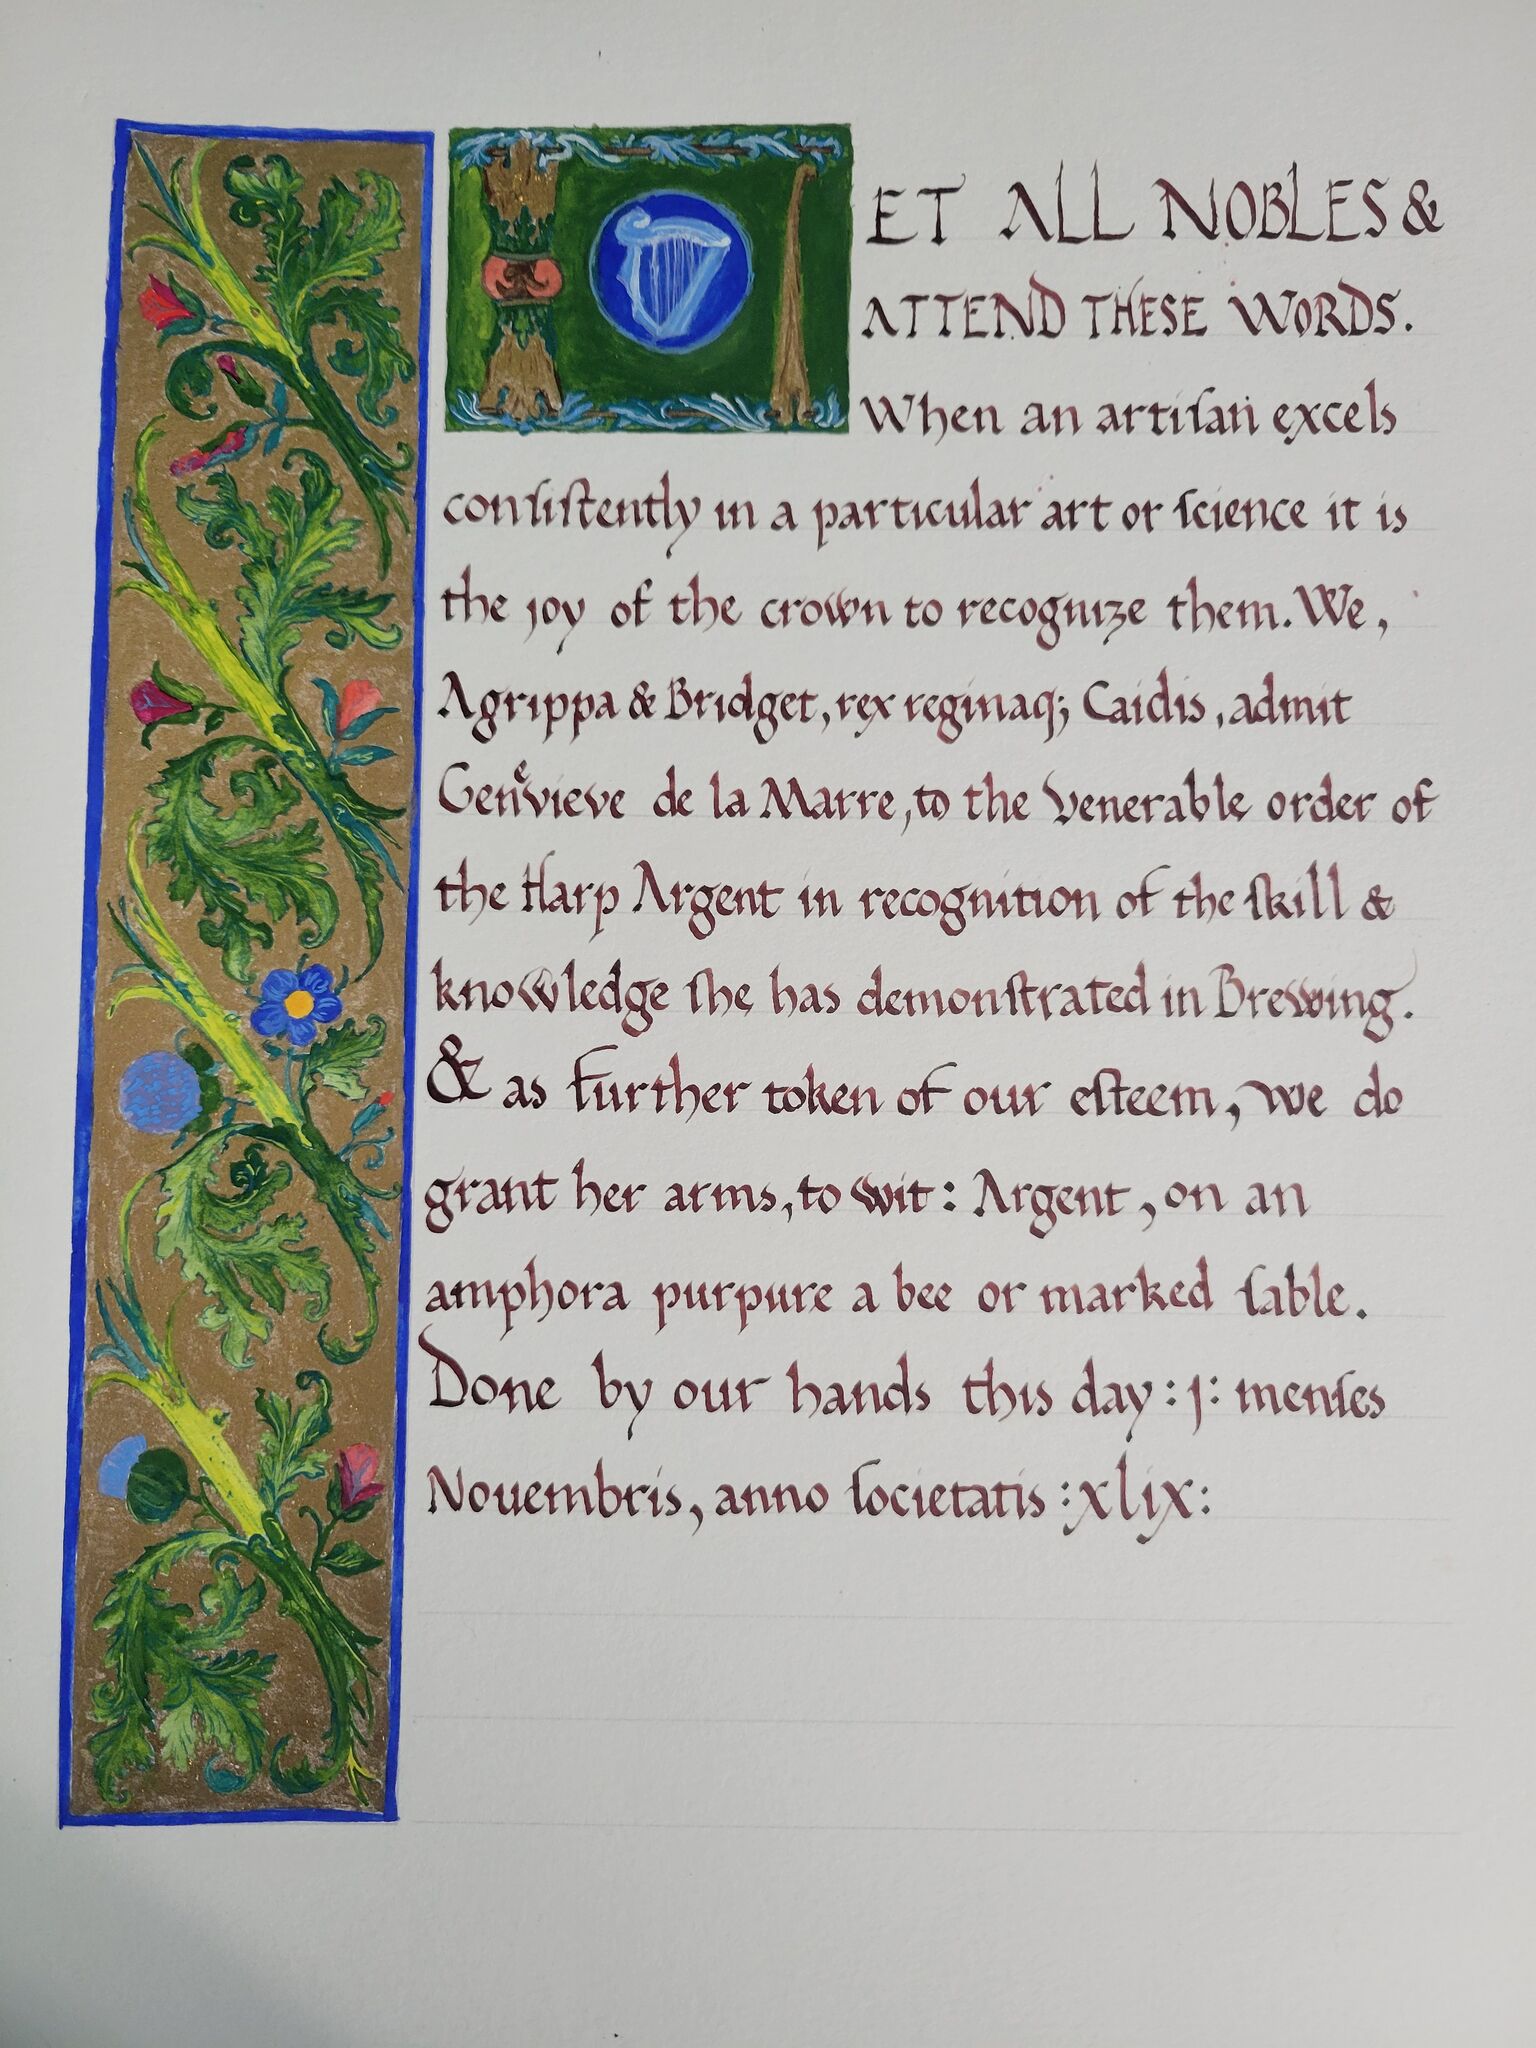 LET ALL NOBLES &
ATTEND THESE WORDS.
When an artiſan excels
conſiſtently in a particular art or ſcience it is
the joy of the crown to recognize them. We,
Agrippa & Bridget, rex reginaq; Caidis, admit
Genevieve de la Marre, to the Venerable order of
the Harp Argent in recognition of the ſkill &
knowledge ſhe has demonſtrated in Brewing.
& as further token of our eſteem, we do
grant her arms, to wit: Argent, on an
amphora purpure a bee or marked ſable.
Done by our hands this day :j: menſes
Nouembris, anno ſocietatis :xlix: